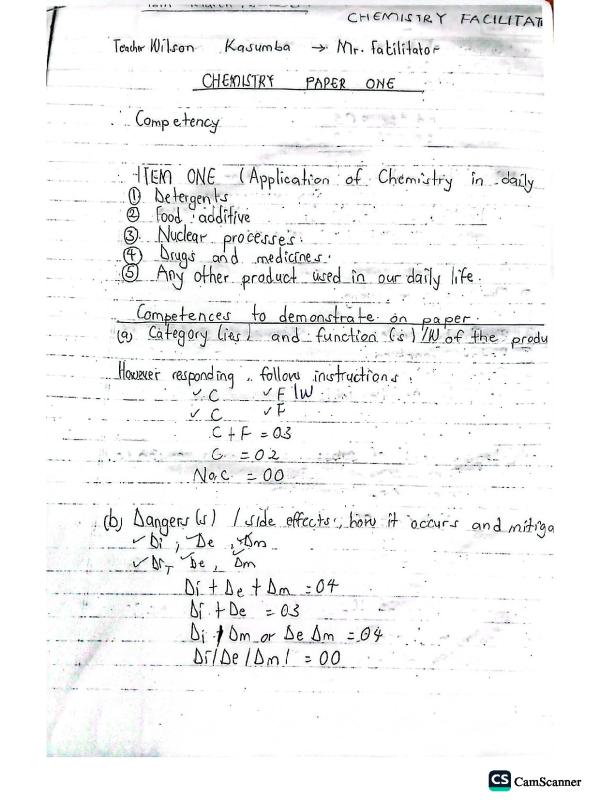 CHEMISTRY FACILITAT
Teacher Wilson Kasumba → Mr. fatilitator
CHEMISTRY PAPER ONE
Competency
ITEM ONE (Application of Chemistry in daily
① Detergents
② Food additive
③ Nuclear processes.
④ Drugs and medicines.
⑤ Any other product used in our daily life.
Competences to demonstrate on paper.
(a) Category (ies) and function (s) /W of the produ
However responding, follow instructions.
✓ C ✓ F /W
✓ C ✓ F
C + F = 03
C = 02
No.C = 00
(b) Dangers(s) / side effects, how it occurs and mitiga
✓ Di, ✓ De, ✓ Dm
✓ Di, ✓ De, Dm
Di + De + Dm = 04
Di + De = 03
Di / Dm or De Dm = 04
Di/De/Dm/ = 00
CS CamScanner